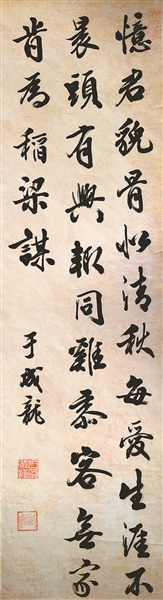 憶君貌骨似清秋每愛生涯不
裹頭有興輒同雞黍客無家
肯為稻粱謀
于成龍